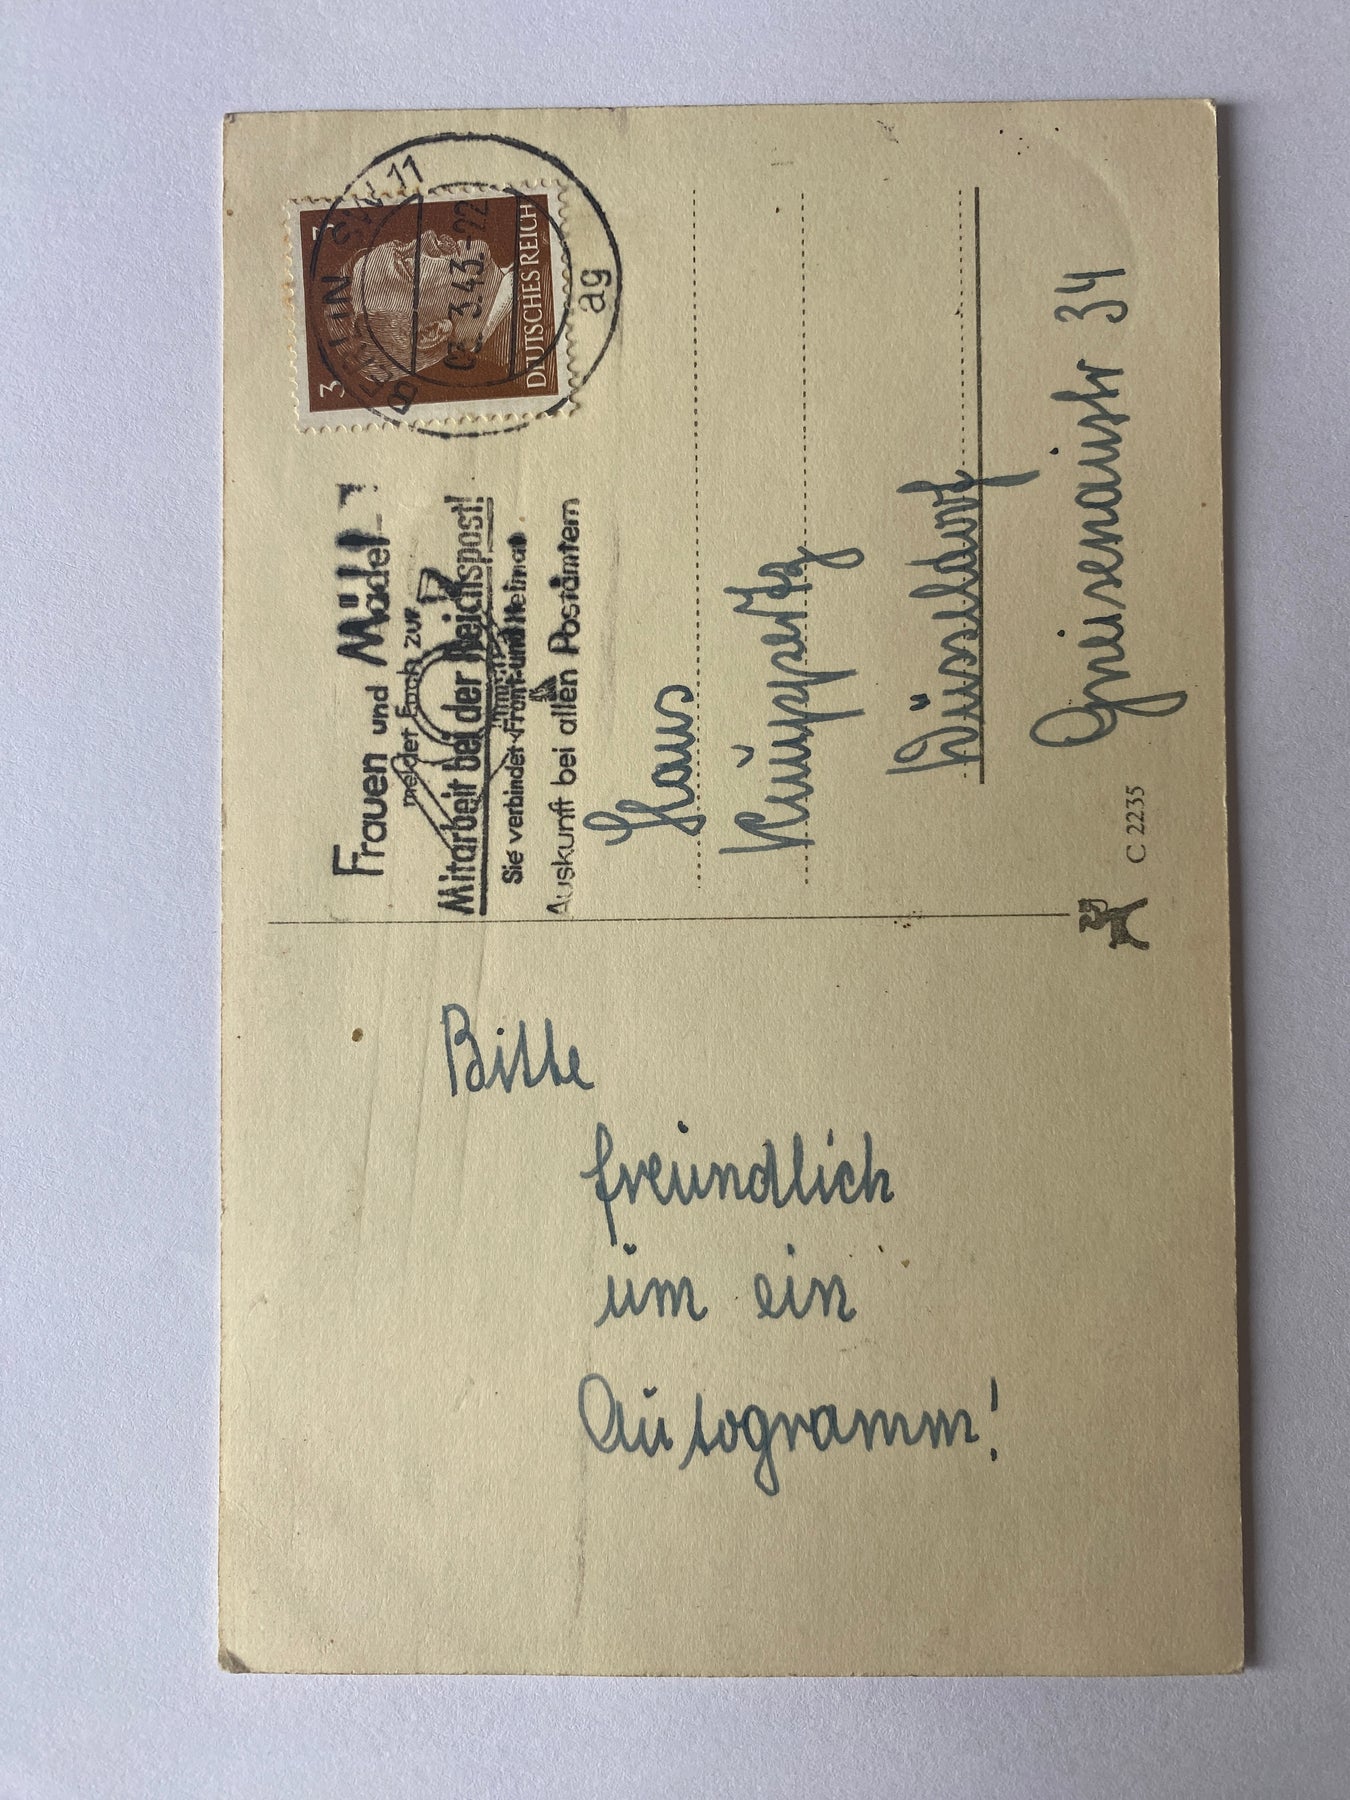 Bitte
freundlich
um ein
Autogramm!
3 3
DEUTSCHES REICH
BERLIN SW 11
3.43.-22
ag
Frauen und Mädel
meldet Euch zur
Mitarbeit bei der Reichspost!
Sie verbindet Front und Heimat
Auskunft bei allen Postämtern
Hans
Knüppertz
Düsseldorf
Gneisenaustr 34
C 2235